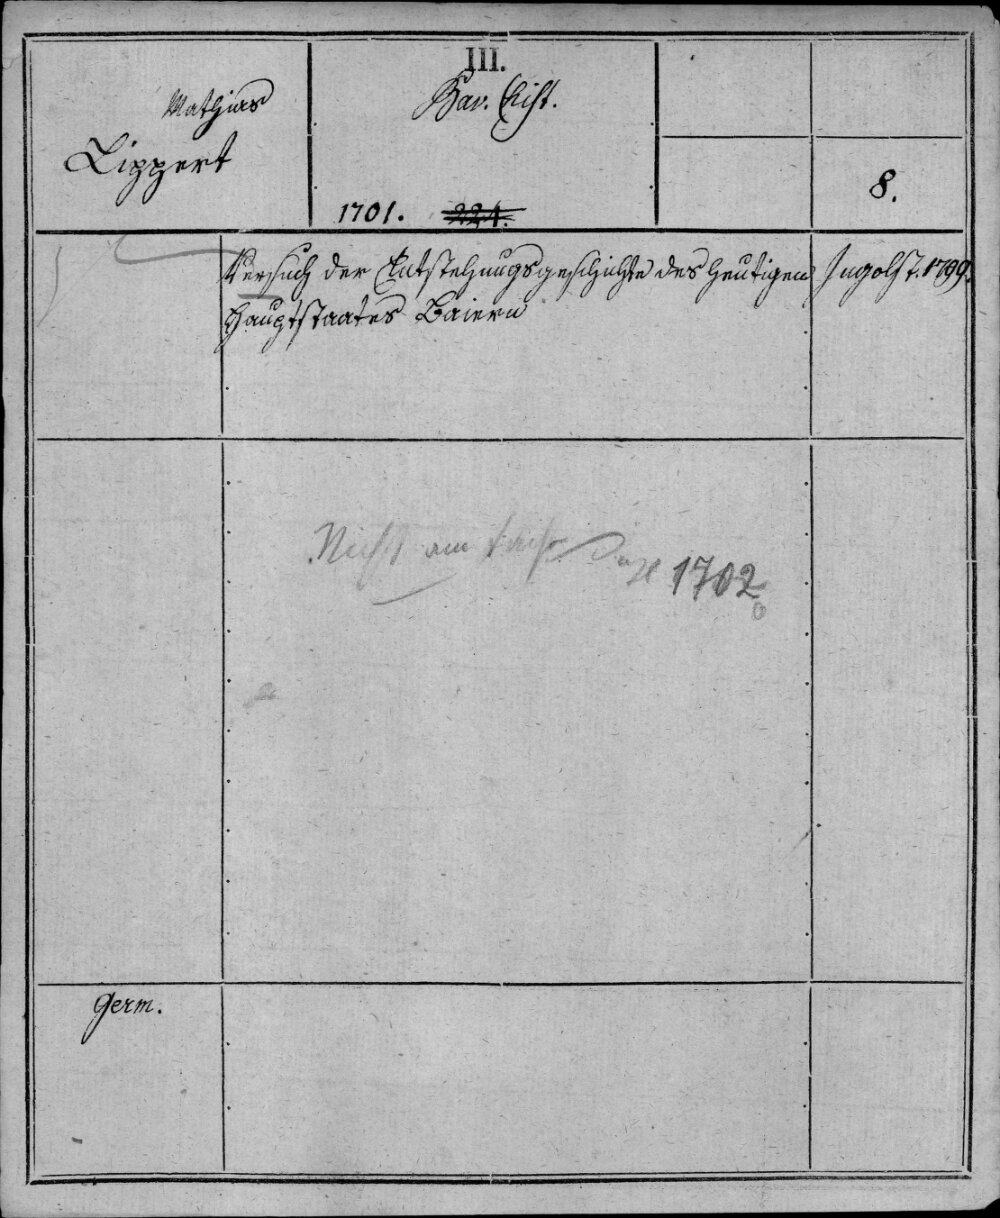 III.
Mathias
Lippert
Bav. Hist.
8.
1701. 224.
Versuch der Entstehungsgeschichte des heutigen
Hauptstaates Baiern
Ingolst. 1799.
Nicht am 1702
Germ.